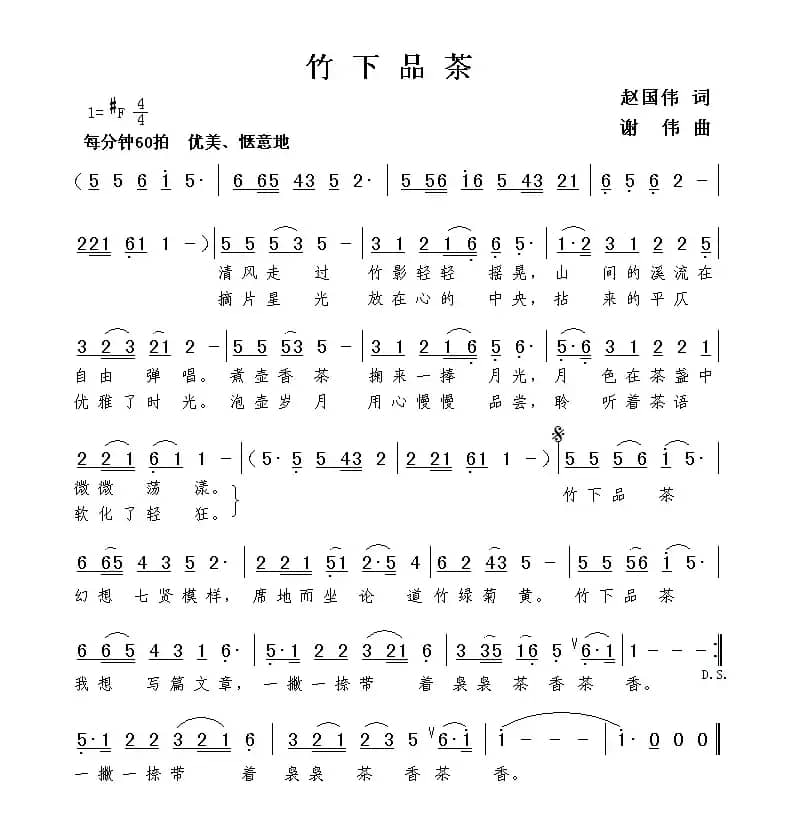 竹下品茶
1=#F 4/4
赵国伟 词
每分钟60拍 优美、惬意地
谢 伟 曲
(5 5 6 i 5· | 6 65 43 5 2· | 5 56 i6 5 43 21 | 6 5 6 2 – |
221 61 1 – ) | 5 5 5 3 5 – | 3 1 2 1 6 6 5· | 1·2 3 1 2 2 5 |
清风走 过 竹影轻轻 摇晃,山 间的溪流在
摘片星 光 放在心的 中央,拈 来的平仄
3 2 3 21 2 – | 5 5 53 5 – | 3 1 2 1 6 5 6· | 5·6 3 1 2 2 1 |
自由 弹唱。煮壶香茶 掬来一捧 月光,月 色在茶盏中
优雅了时光。泡壶岁月 用心慢慢 品尝,聆 听着茶语
2 2 1 6 1 1 – | (5· 5 5 43 2 | 2 221 61 1 – ) | 5 5 5 6 i 5· |
微微 荡 漾。 竹下品 茶
软化了轻 狂。
6 65 4 3 5 2· | 2 2 1 51 2·5 4 | 6 2 43 5 – | 5 5 56 i 5· |
幻想 七贤模样,席地而坐 论 道竹绿菊 黄。竹下品 茶
6 6 5 4 3 1 6· | 5·1 2 2 3 2 1 6 | 3 35 16 5 ∨6·1 | 1 – – – :‖
我想 写篇文章,一撇一捺带 着袅袅 茶香茶 香。
D.S.
5·1 2 2 3 2 1 6 | 3 2 1 2 3 5 ∨6·i | i – – – | i· 0 0 0 ‖
一撇一捺带 着 袅袅 茶 香茶 香。